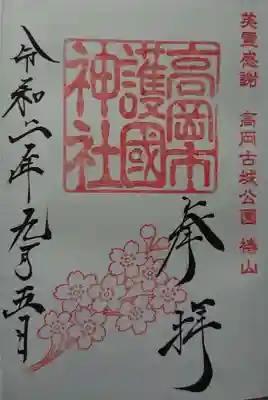 英霊感謝 高岡古城公園 椿山
高岡市
護國
神社
奉拝
令和六年九月五日